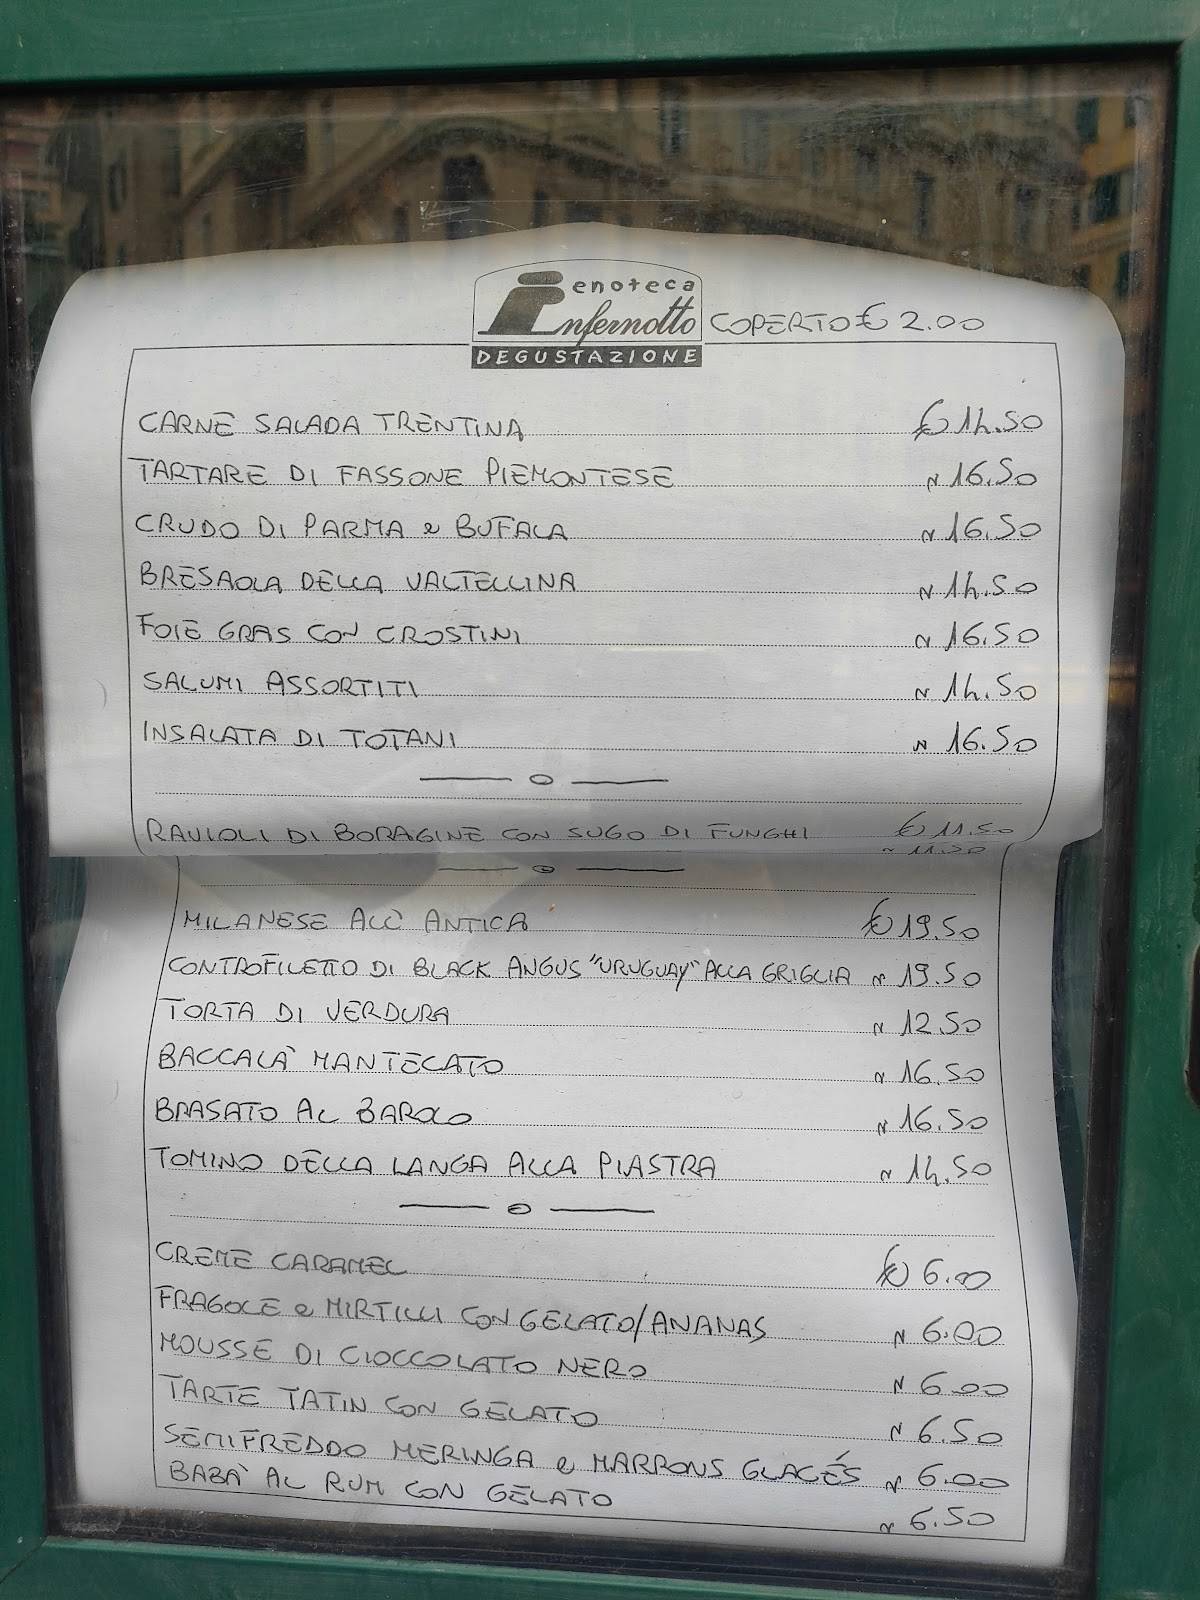 enoteca
Infernotto COPERTO € 2.00
DEGUSTAZIONE
CARNE SALADA TRENTINA € 14.50
TARTARE DI FASSONE PIEMONTESE " 16.50
CRUDO DI PARMA e BUFALA " 16.50
BRESAOLA DELLA VALTELLINA " 14.50
FOIE GRAS CON CROSTINI " 16.50
SALUMI ASSORTITI " 14.50
INSALATA DI TOTANI " 16.50
RAVIOLI DI BORAGINE CON SUGO DI FUNGHI € 11.50
MILANESE ALL' ANTICA € 19.50
CONTROFILETTO DI BLACK ANGUS "URUGUAY" ALLA GRIGLIA " 19.50
TORTA DI VERDURA " 12.50
BACCALA' MANTECATO " 16.50
BRASATO AL BAROLO " 16.50
TOMINO DELLA LANGA ALLA PIASTRA " 14.50
CREME CARAMEL € 6.00
FRAGOLE e MIRTILLI CON GELATO/ANANAS " 6.00
MOUSSE DI CIOCCOLATO NERO " 6.00
TARTE TATIN CON GELATO " 6.50
SEMIFREDDO MERINGA e MARRONS GLACÉS " 6.00
BABA' AL RUM CON GELATO " 6.50